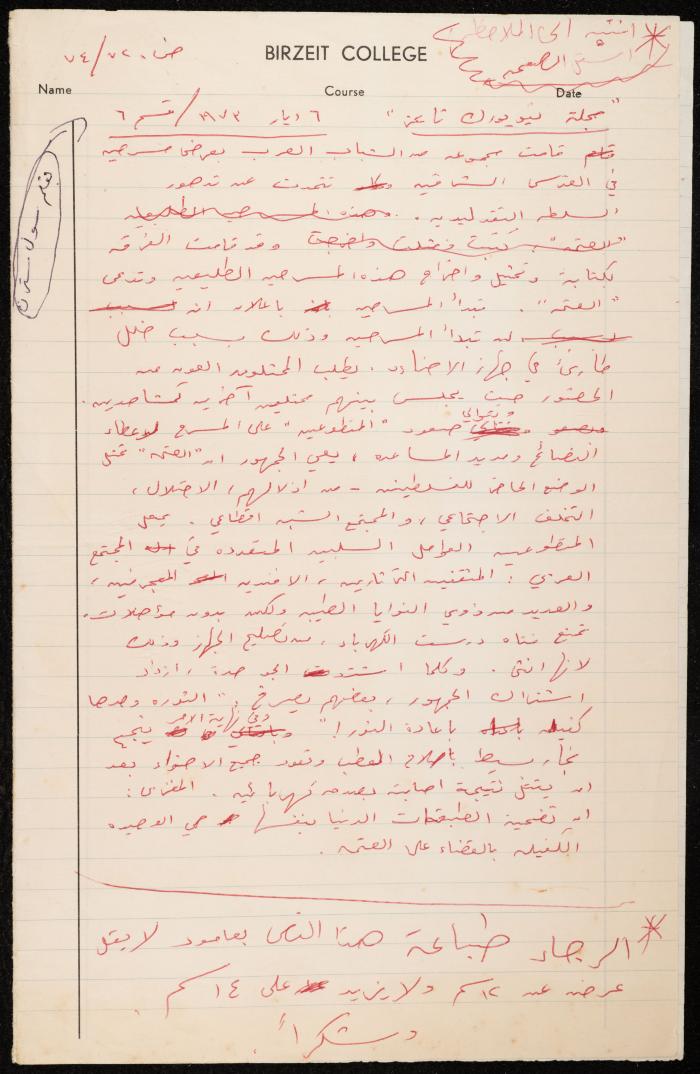 انتبه الى الملاحظة
اسفل الصفحة
ص. ٧٢/٧٤
BIRZEIT COLLEGE
Name Course Date
"مجلة نيويورك تايمز" ٦ ايار ١٩٧٣/ قسم ٦
بقلم
قامت مجموعه من الشباب العرب بعرض مسرحيه
في القدس الشرقيه تتحدث عن تدهور
السلطه التقليديه. وهذه المسرحيه الطليعيه
"العتمه" كتبت ومثلت واخرجت وقد قامت الفرقه
بكتابة وتمثيل واخراج هذه المسرحيه الطليعيه وتدعى
"العتمه". تبدأ المسرحيه باعلان انه بسبب
لن تبدأ المسرحيه وذلك بسبب خلل
طارئ في جهاز الاضاءه. يطلب الممثلون العون من
الحضور حيث يجلس بينهم ممثلين آخرين كمشاهدين.
ويتوالى
صعود "المتطوعين" على المسرح لاعطاء
النصائح ومد يد المساعده، يعي الجمهور ان "العتمه" تمثل
الوضع الخاص للفلسطينين - من اذلالهم، الاحتلال،
التخلف الاجتماعي، والمجتمع الشبه اقطاعي. يمثل
المتطوعين العوامل السلبيه المتعدده في المجتمع
العربي: المثقفين الثرثارين، الافنديه المعجرفين،
والعديد من ذوي النوايا الطيبه ولكن بدون مؤهلات.
تمنع فتاه درست الكهرباء، من تصليح الجهاز وذلك
لانها انثى. وكلما اشتدت الجو حدة، ازداد
اشتراك الجمهور، بعضهم يصرخ: "الثوره وحدها
كفيله باعادة النور!" وفي نهاية الامر ينجح
نجار بسيط باصلاح العطب وتعود جميع الاضواء بعد
ان يقتل نتيجة اصابته بصدمه كهربائيه. المغزى:
ان تضحية الطبقات الدنيا بنفسها هي الوحيده
الكفيله بالقضاء على العتمه.
الرجاء طباعة هذا النص بعامود لا يقل
عرضه عن ١٢ سم ولا يزيد على ١٤ سم
وشكراً.